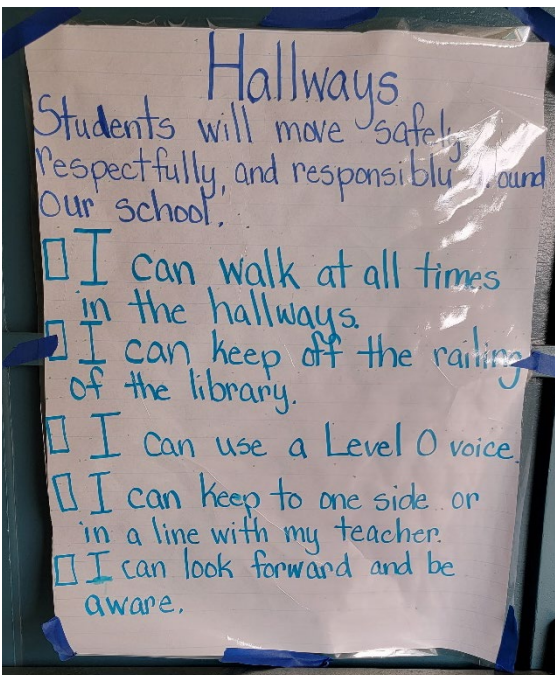 Hallways
Students will move safely,
respectfully, and responsibly around
our school.
I can walk at all times
in the hallways.
I can keep off the railing
of the library.
I can use a Level 0 voice.
I can keep to one side or
in a line with my teacher.
I can look forward and be
aware.